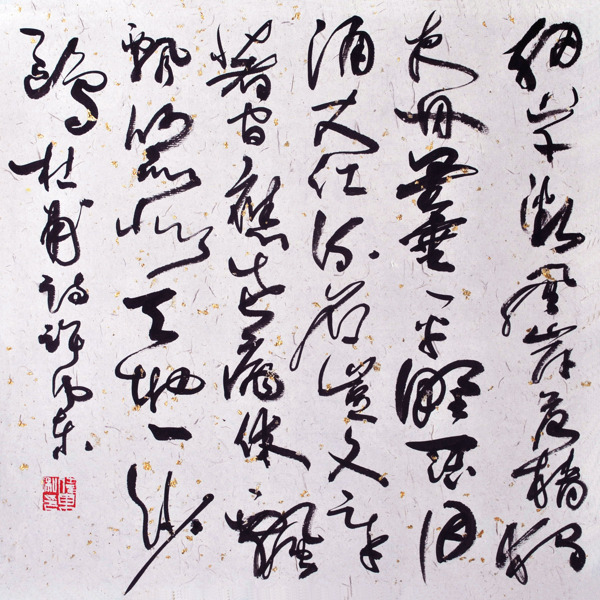 細草微風岸危檣獨
夜舟星垂平野闊月
涌大江流名豈文章
著官應老病休飄
飄何所似天地一沙
鷗 杜甫詩